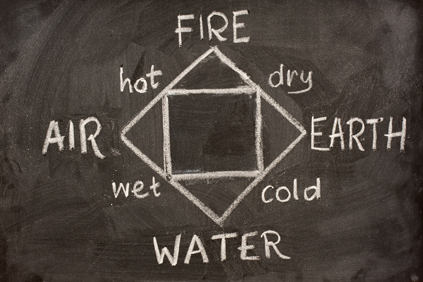 FIRE
hot dry
AIR EARTH
wet cold
WATER